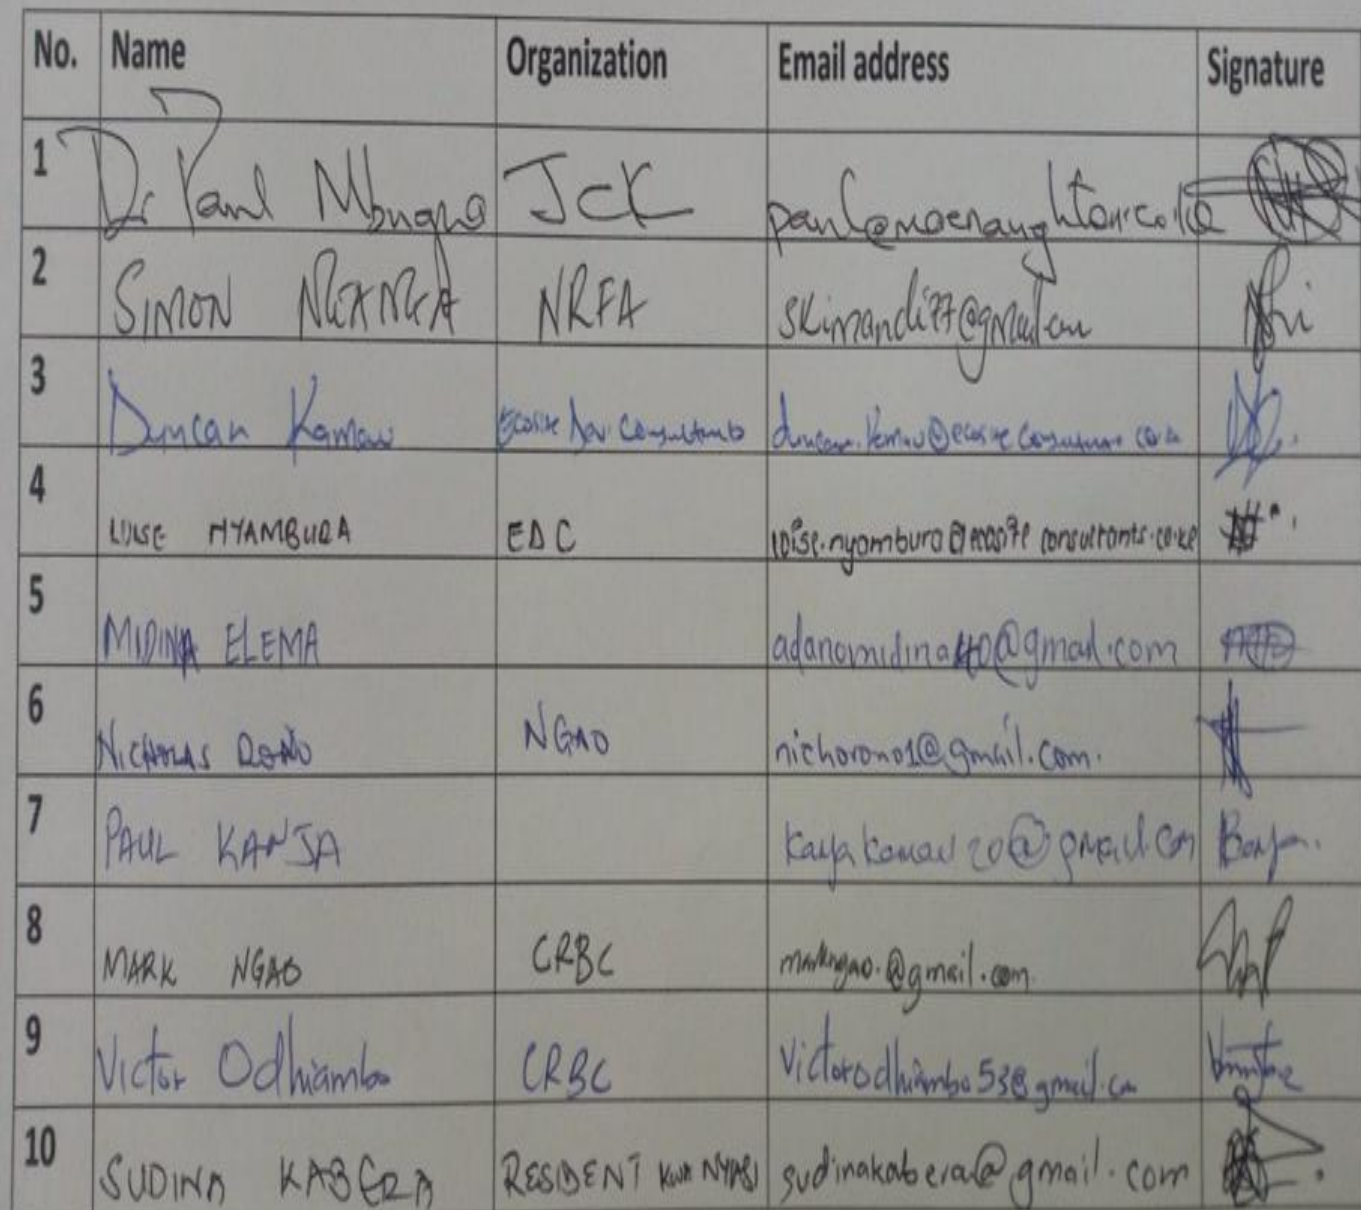 No. Name Organization Email address Signature
1 Dr Paul Mbugua JCK
2 SIMON NGANGA NRFA skimandi77@gmail.com
3 Duncan Kamau Ecosite Dev. Consultants
4 LOISE NYAMBURA EDC loise.nyambura@ecositeconsultants.co.ke
5 MIDINA ELEMA adanomidina40@gmail.com
6 NICHOLAS RONO NGAO nichorono1@gmail.com.
7 PAUL KANJA
8 MARK NGAO CRBC markngao.@gmail.com
9 Victor Odhiambo CRBC victorodhiambo53@gmail.com
10 SUDINA KABERA RESIDENT KWA NYASI sudinakabera@gmail.com